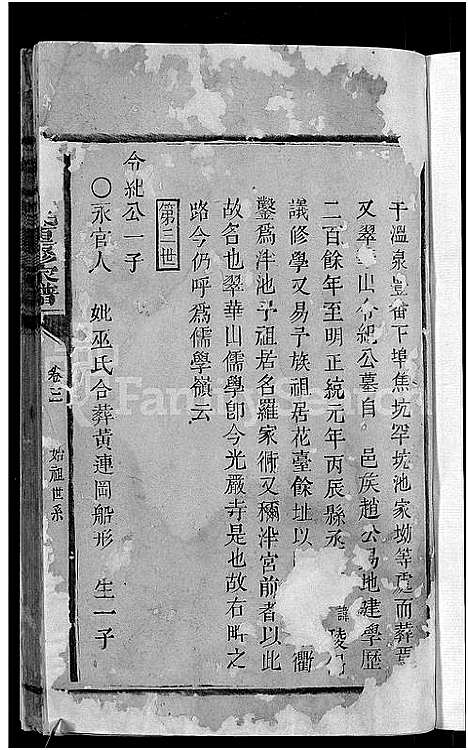 于溫泉豊畨下埠焦坑罕坑池家坳等處而葬
又翠山令紀公墓自邑矦趙公易地建學歷
二百餘年至明正統元年丙辰縣丞諱陵
議修學又易予族祖居花臺餘址以衢
鑿爲泮池予祖居名羅家衕又稱泮宮前者以此
故名也翠華山儒學卽今光嚴寺是也故右畔之
路今仍呼爲儒學嶺云
第三世
令紀公一子
〇永官人 妣巫氏合葬黃連岡船形 生一子
重修宗譜 卷三 始祖世系
FamilySearch